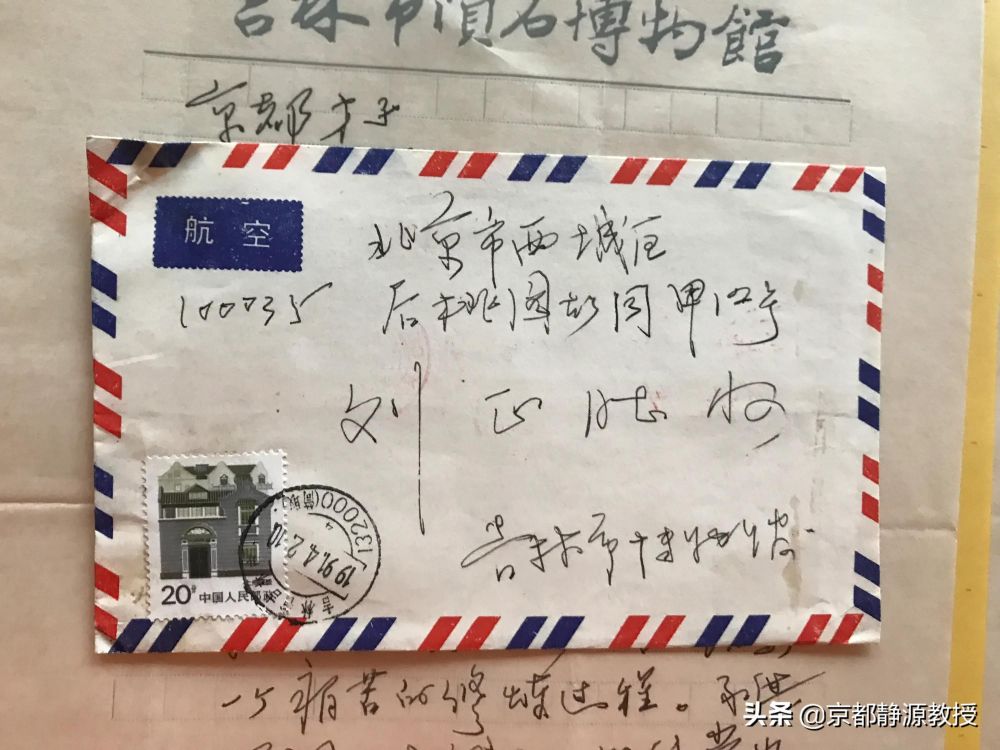 吉林市陨石博物館
京都才子
航空
北京市西城区
100035
后桃园胡同甲12号
刘正
吉林市博物馆
20分 中国人民邮政
132000(筒取)
1991.4.2.10
吉林
一个痛苦的修炼过程。
头条 @京都静源教授